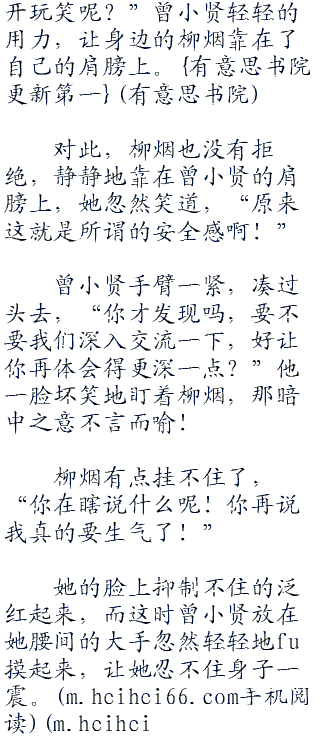 开玩笑呢？”曾小贤轻轻的
用力，让身边的柳烟靠在了
自己的肩膀上。{有意思书院
更新第一}(有意思书院)
对此，柳烟也没有拒
绝，静静地靠在曾小贤的肩
膀上，她忽然笑道，“原来
这就是所谓的安全感啊！”
曾小贤手臂一紧，凑过
头去，“你才发现吗，要不
要我们深入交流一下，好让
你再体会得更深一点？”他
一脸坏笑地盯着柳烟，那暗
中之意不言而喻！
柳烟有点挂不住了，
“你在瞎说什么呢！你再说
我真的要生气了！”
她的脸上抑制不住的泛
红起来，而这时曾小贤放在
她腰间的大手忽然轻轻地fu
摸起来，让她忍不住身子一
震。(m.hcihci66.com手机阅
读)(m.hcihci